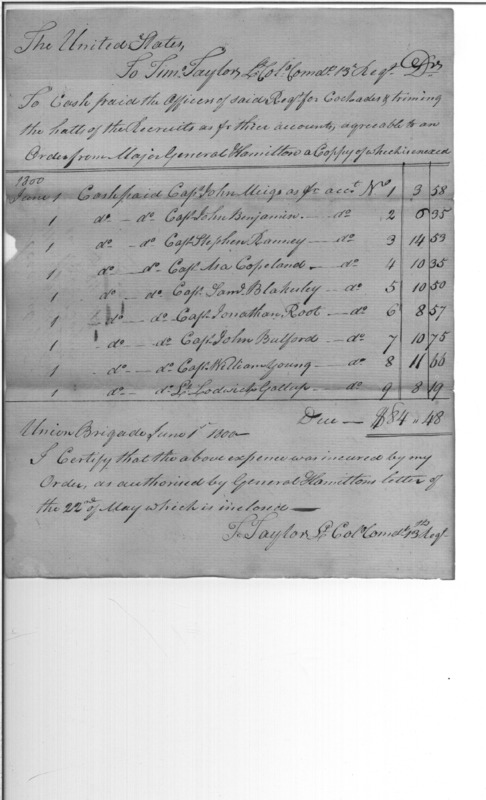 The United States,
To Tim. Taylor Lt. Colo. Comdt. 13 Regt. Drs
To Cash paid the Officers of said Regt. for Cockades & triming
the hatts of the Recruits as pr three accounts, agreeable to an
Order from Major General Hamilton a Coppy of which is inexed
1800
June 1 Cash paid Capt. John Meigs as pr acct. No 1 3 58
1 do - do Capt. John Benjamin - do 2 6 35
1 do - do Capt. Stephen Ranney - do 3 14 53
1 do - do Capt. Asa Copeland - do 4 10 35
1 do - do Capt. Saml. Blakesley - do 5 10 50
1 do - do Capt. Jonathan Root - do 6 8 57
1 do - do Capt. John Bulford - do 7 10 75
1 do - do Capt. William Young - do 8 11 66
1 do - do Lt. Lodwick Gallup - do 9 8 19
Due - $84 " 48
Union Brigade June 1st 1800
I Certify that the above expence was incured by my
Order, as authorised by General Hamiltons letter of
the 22nd of May which is inclosed -
T. Taylor Lt. Colo. Comdt. 13th Regt.